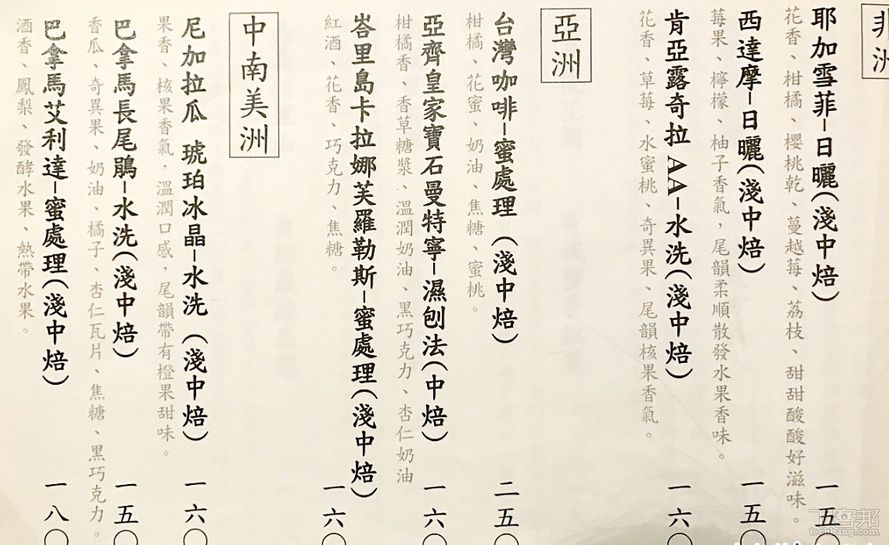 非洲
耶加雪菲-日曬(淺中焙) 一五〇
花香、柑橘、櫻桃乾、蔓越莓、荔枝、甜甜酸酸好滋味。
西達摩-日曬(淺中焙) 一五〇
莓果、檸檬、柚子香氣,尾韻柔順散發水果香味。
肯亞露奇拉 AA-水洗(淺中焙) 一六〇
花香、草莓、水蜜桃、奇異果、尾韻核果香氣。
亞洲
台灣咖啡-蜜處理 (淺中焙) 二五〇
柑橘、花蜜、奶油、焦糖、蜜桃。
亞齊皇家寶石曼特寧-濕刨法(中焙) 一六〇
柑橘香、香草糖漿、溫潤奶油、黑巧克力、杏仁奶油
峇里島卡拉娜芙羅勒斯-蜜處理(淺中焙) 一六〇
紅酒、花香、巧克力、焦糖。
中南美洲
尼加拉瓜 琥珀冰晶-水洗 (淺中焙) 一六〇
果香、核果香氣,溫潤口感,尾韻帶有橙果甜味。
巴拿馬長尾鵑-水洗(淺中焙) 一五〇
香瓜、奇異果、奶油、橘子、杏仁瓦片、焦糖、黑巧克力。
巴拿馬艾利達-蜜處理(淺中焙) 一八〇
酒香、鳳梨、發酵水果、熱帶水果。